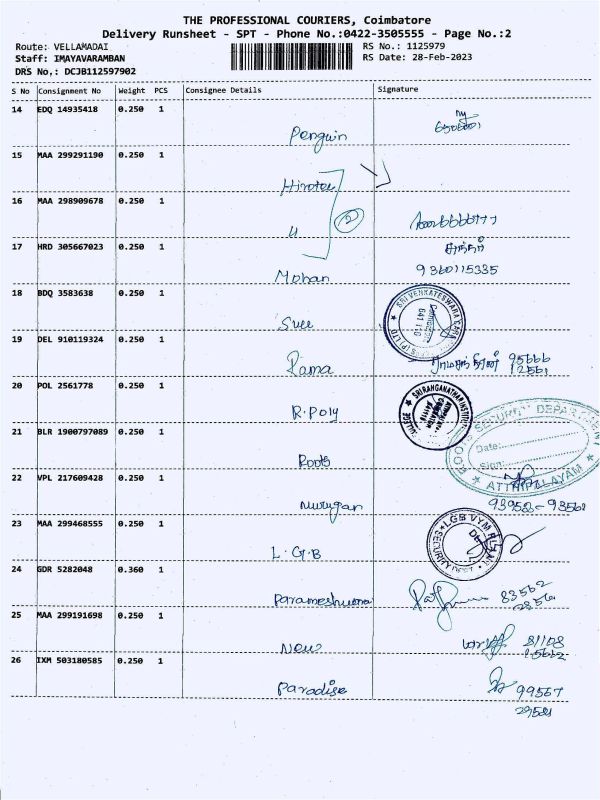 THE PROFESSIONAL COURIERS, Coimbatore
Delivery Runsheet - SPT - Phone No.:0422-3505555 - Page No.:2
Route: VELLAMADAI RS No.: 1125979
Staff: IMAYAVARAMBAN RS Date: 28-Feb-2023
DRS No,: DCJB112597902
S No Consignment No Weight PCS Consignee Details Signature
14 EDQ 14935418 0.250 1
Penguin
15 MAA 299291190 0.250 1
16 MAA 298909678 0.250 1
2
17 HRD 305667023 0.250 1
Mohan 9360115335
18 BDQ 3583638 0.250 1
SRI VENKATESWARA
641 110
19 DEL 910119324 0.250 1
Rama 95666
12561
20 POL 2561778 0.250 1
R. Poly
SRI RANGANATHAR INSTITU
21 BLR 1900797089 0.250 1
Roots
ROOTS SECURITY DEPARTMENT
Date:
Sign:
ATTHIPALAYAM
22 VPL 217609428 0.250 1
Murugan 93953-93562
23 MAA 299468555 0.250 1
L.G.B
LGB VYM PLANT
SECURITY
24 GDR 5282048 0.360 1
Parameshwara 83562
25 MAA 299191698 0.250 1
New 81108
26 IXM 503180585 0.250 1
Paradise 99567
29581